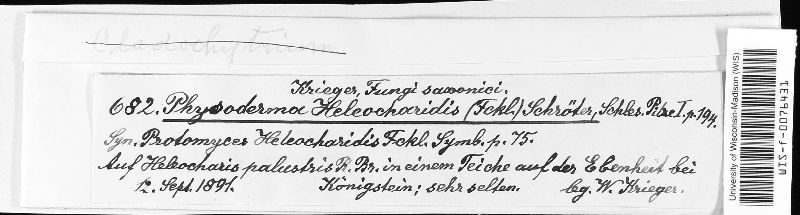 Cladochytrium
Krieger, Fungi saxonici.
682. Physoderma Heleocharidis (Fckl.) Schröter, Schles. Pilze I. p. 194.
Syn. Protomyces Heleocharidis Fckl. Symb. p. 75.
Auf Heleocharis palustris R. Br. in einem Teiche auf der Ebenheit bei
12. Sept. 1891. Königstein; sehr selten. lg. W. Krieger.
University of Wisconsin-Madison (WIS)
WIS-F-0076431